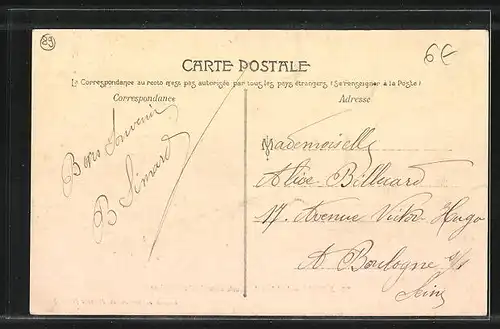 89
6€
CARTE POSTALE
La Correspondance au recto n'est pas autorisée par tous les pays étrangers (Se renseigner à la Poste)
Correspondance
Adresse
Bons Souvenir
B Simard
Mademoiselle
Alice Billuard
17. Avenue Victor Hugo
A Boulogne s/s
Seine